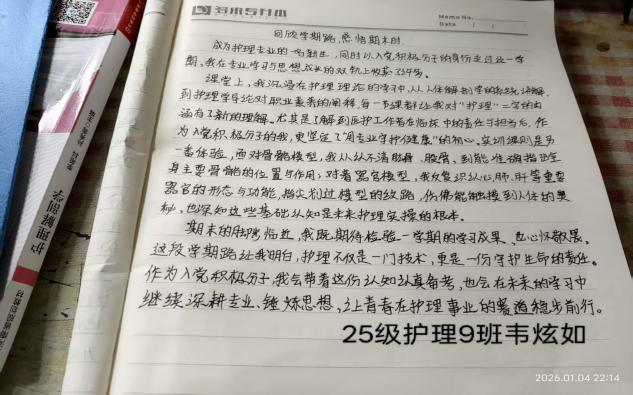 多来专升本
Memo No.
Date / /
回顾学期路,感悟期末时
成为护理专业的一名新生,同时以入党积极分子的身份走过这一学
期,我在专业学习与思想成长的双轨上收获了许多。
课堂上,我沉浸在护理理论的学习中,从人体解剖学的系统讲解,
到护理学导论对职业素养的阐释,每一节课都让我对“护理”二字的内
涵有了新的理解。尤其是了解到医护工作者在临床中的责任与担当后,作
为入党积极分子的我,更坚定了“用专业守护健康”的初心。实训课则是另
一番体验,面对骨骼模型,我从认不清肱骨、股骨,到能准确指出全
身主要骨骼的位置与作用;对着器官模型,我反复识认心、肺、肝等重要
器官的形态与功能,指尖划过模型的纹路,仿佛能触摸到人体的奥
秘,也深知这些基础认知是未来护理实操的根本。
期末的脚步临近,我既期待检验一学期的学习成果,也心怀敬畏。
这段学期路让我明白,护理不仅是一门技术,更是一份守护生命的责任。
作为入党积极分子,我会带着这份认知认真备考,也会在未来的学习中
继续深耕专业、锤炼思想,让青春在护理事业的赛道稳步前行。
25级护理9班韦炫如
护理解剖学
2026.01.04 22:14